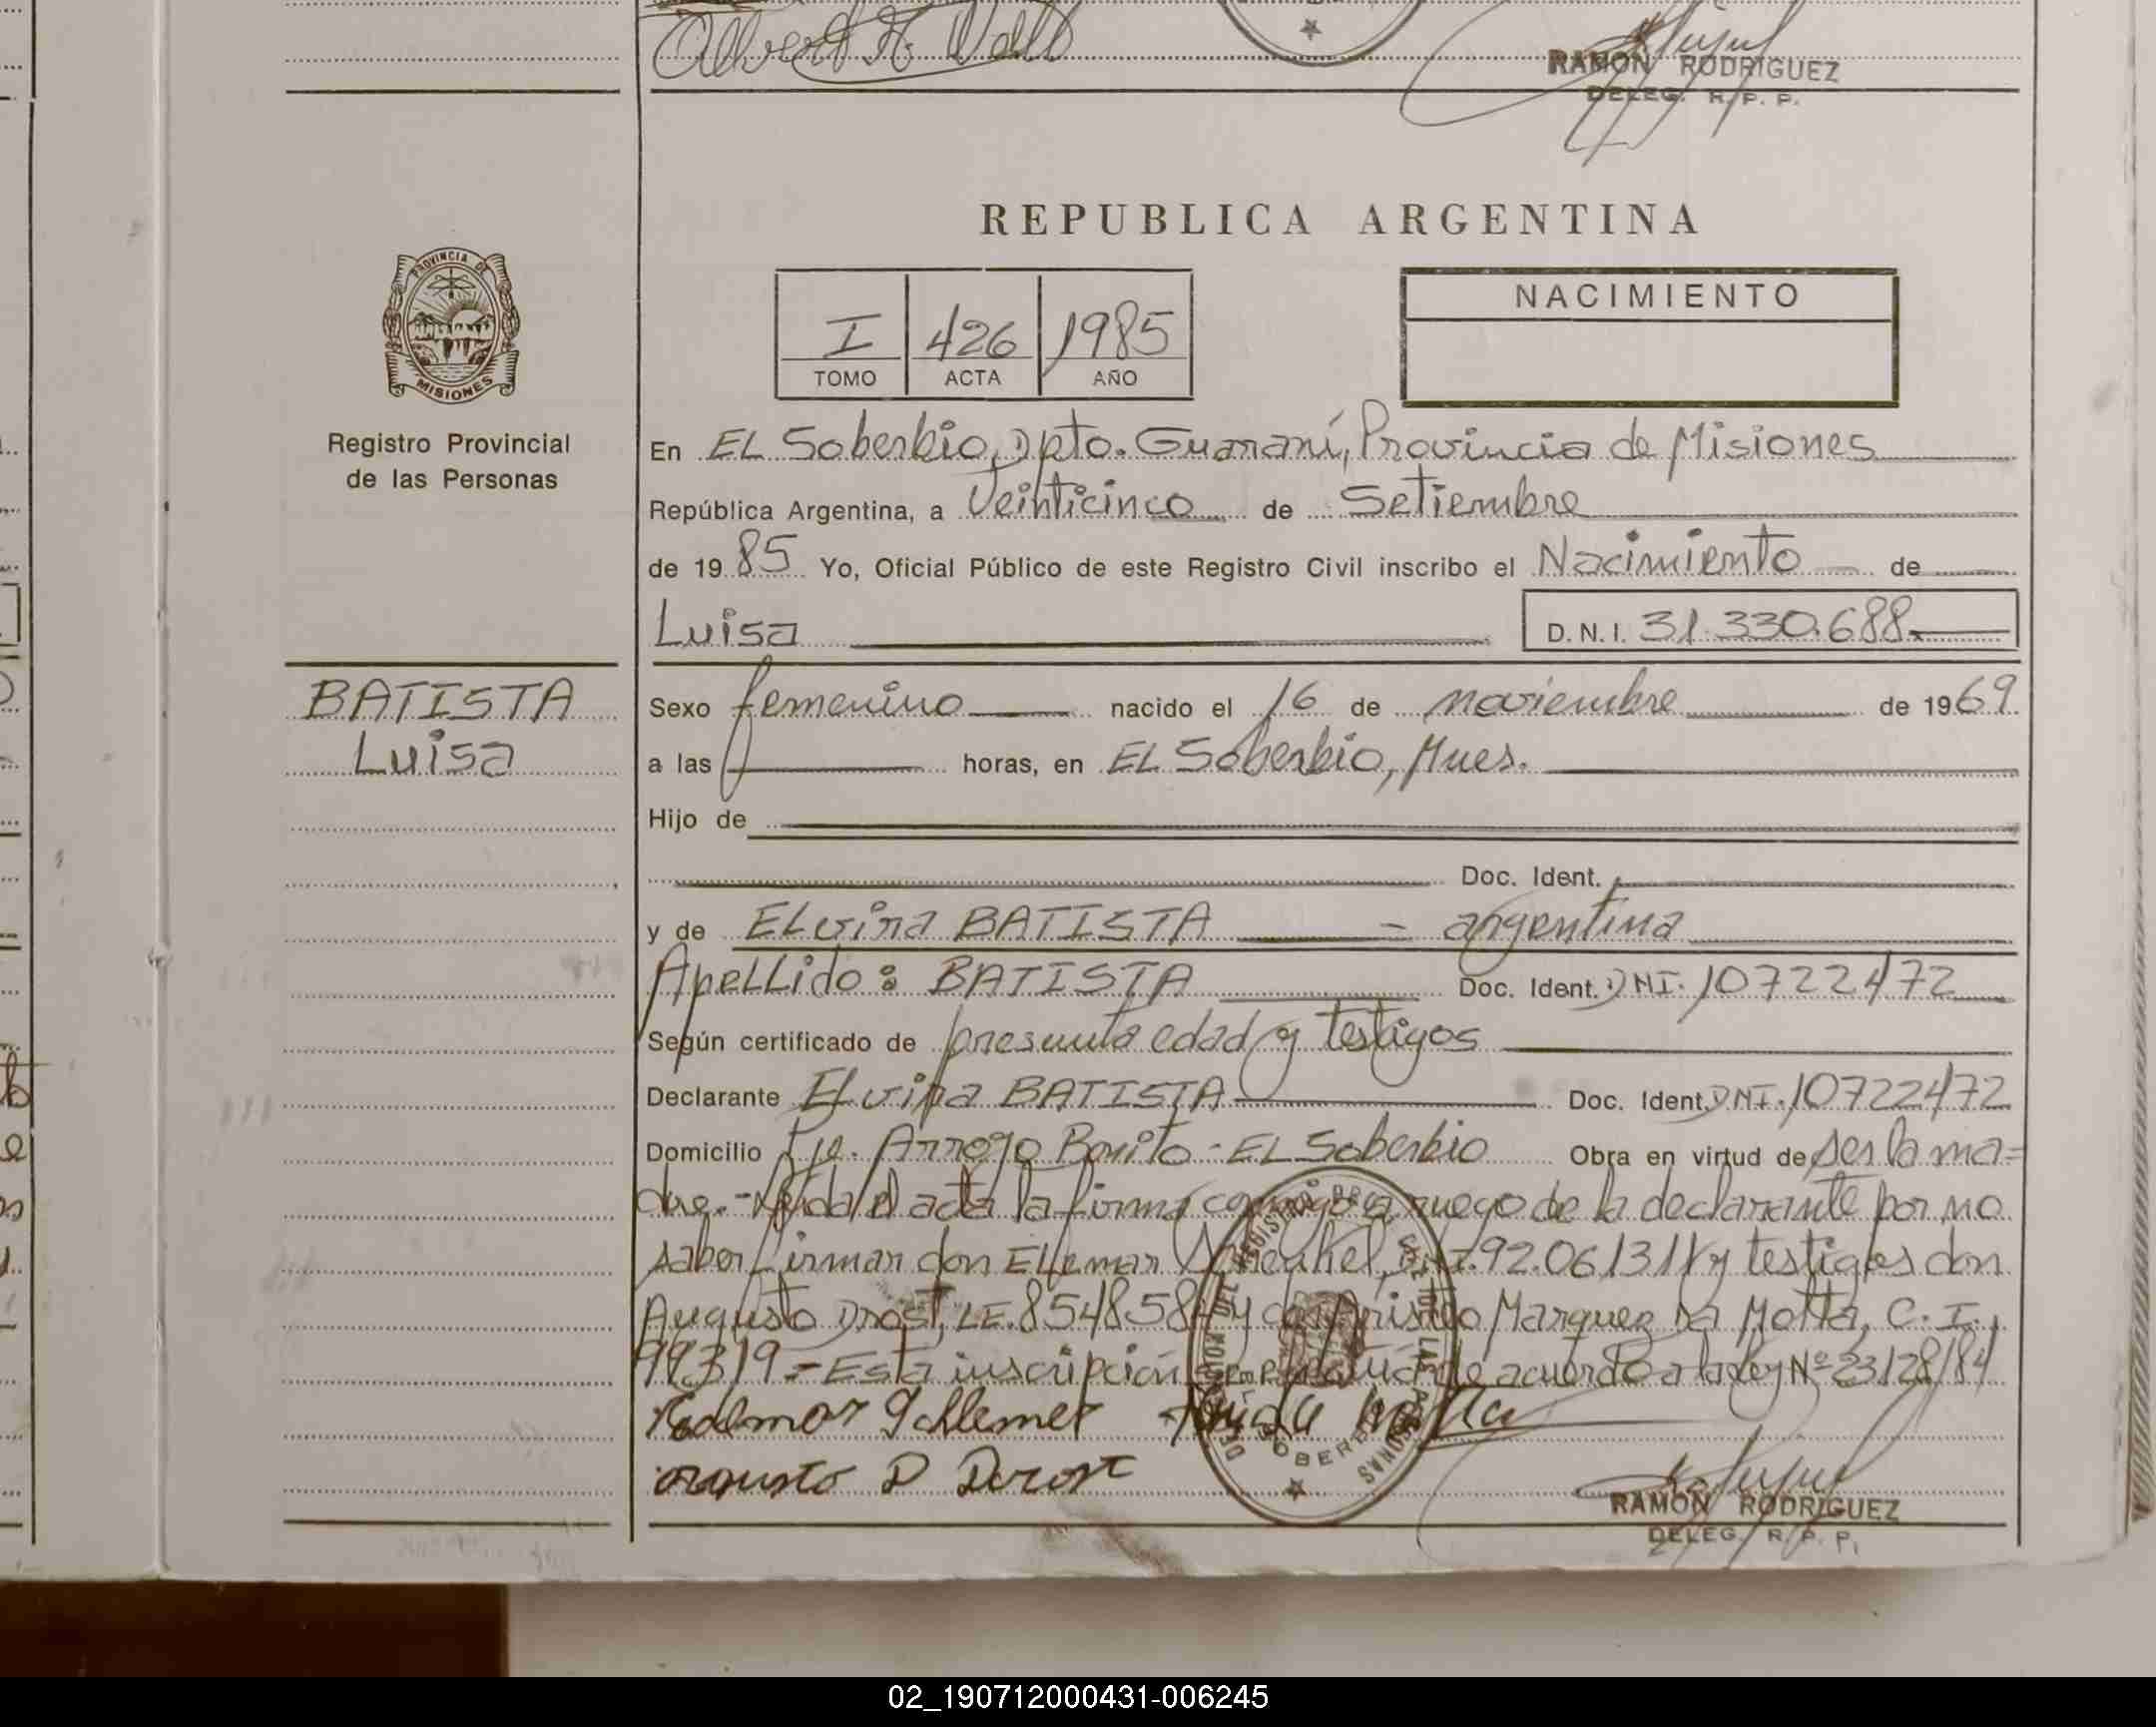 Albert A. Wall
RAMON RODRIGUEZ
DELEG. R. P. P.
REPUBLICA ARGENTINA
PROVINCIA DE
MISIONES
Registro Provincial
de las Personas
I 426 1985
TOMO ACTA AÑO
NACIMIENTO
En EL Soberbio, Dpto. Guaraní, Provincia de Misiones
República Argentina, a Veinticinco de Setiembre
de 1985 Yo, Oficial Público de este Registro Civil inscribo el Nacimiento de
Luisa D.N.I. 31.330.688.
BATISTA
Luisa
Sexo femenino nacido el 16 de noviembre de 1969
a las horas, en EL Soberbio, Mnes.
Hijo de
Doc. Ident.
y de ELvira BATISTA - argentina
Apellido: BATISTA Doc. Ident. DNI. 10722472
Según certificado de presunta edad y testigos
Declarante ELvira BATISTA Doc. Ident. DNI. 10722472
Domicilio Pje. Arroyo Bonito - EL Soberbio Obra en virtud de ser la ma=
dre.- Leida el acta la firma conmigo a ruego de la declarante por no
saber firmar don ELemar 92.061311 y testigos don
Augusto Drost, LE. 854858 y don Aristeo Marquez Da Motta, C.I.
99319 = Esta inscripción se de acuerdo a la ley Nº 23128/84
augusto D Drost
RAMON RODRIGUEZ
DELEG. R. P. P.
02_190712000431-006245